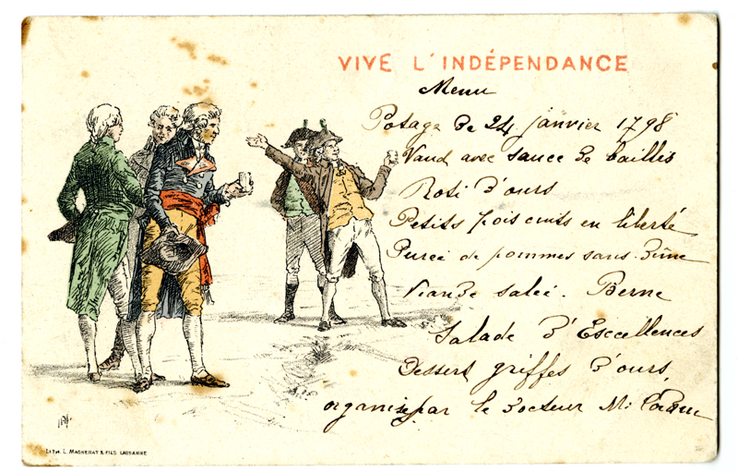 VIVE L'INDÉPENDANCE
Menu
Potage de 24 janvier 1798
Vaud avec sauce de baillis
Roti d'ours
Petits pois cuits en liberté
Purée de pommes sans dîme
Viande salée. Berne
Salade d'Excellences
Dessert griffes d'ours
organisé par le docteur M.
LITH. L. MAGNENAT & FILS LAUSANNE